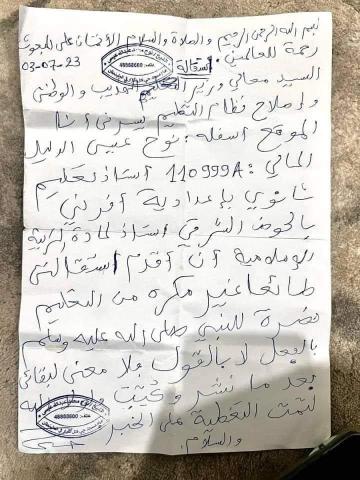 بسم الله الرحمن الرحيم والصلاة والسلام الأتمان على المبعوث
رحمة للعالمين
استقالة
48868600
03-07-23
السيد معالي وزير التهذيب الوطني
وإصلاح نظام التعليم يسرني أنا
الموقع أسفله: نوح عيسى الدليل
المالي: 110999A أستاذ تعليم
ثانوي بإعدادية أفرني
بالحوض الشرقي أستاذ لمادة التربية
الإسلامية أن أقدم استقالتي
طائعا غير مكره من التعليم
نصرة للنبي صلى الله عليه وسلم
بالفعل لا بالقول ولا معنى لبقائي
بعد ما نشر وكتب
لتمت التغطية على الخبر
والسلام.
48868600